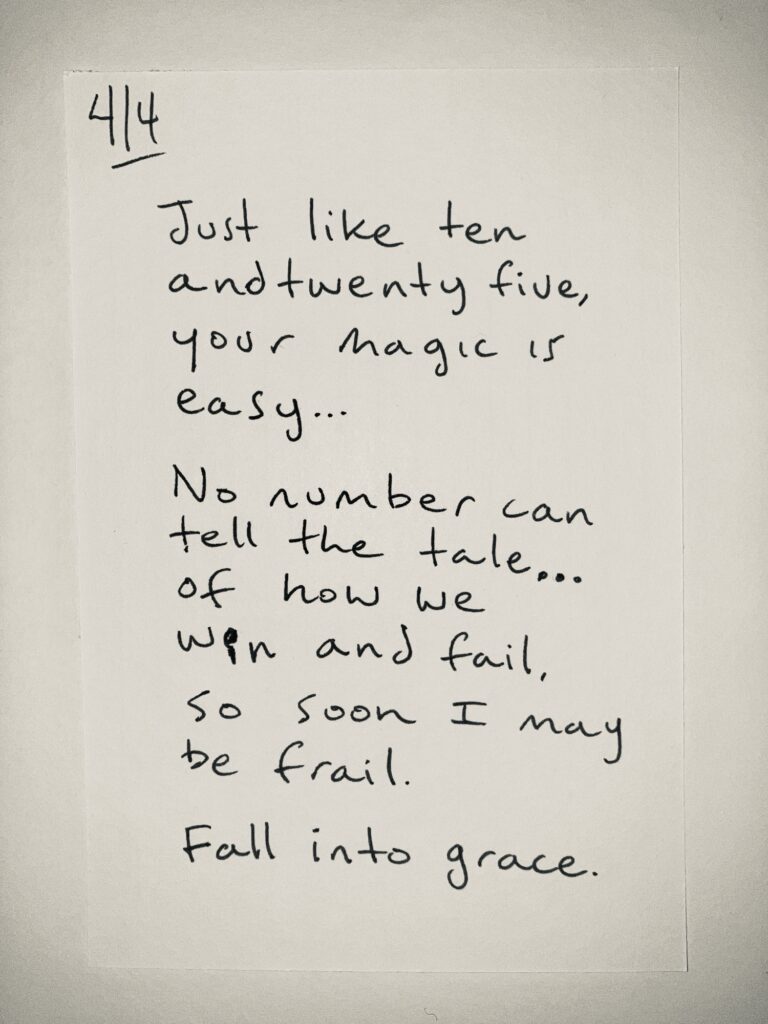 4/4
Just like ten
and twenty five,
your magic is
easy...
No number can
tell the tale...
of how we
win and fail,
so soon I may
be frail.
Fall into grace.